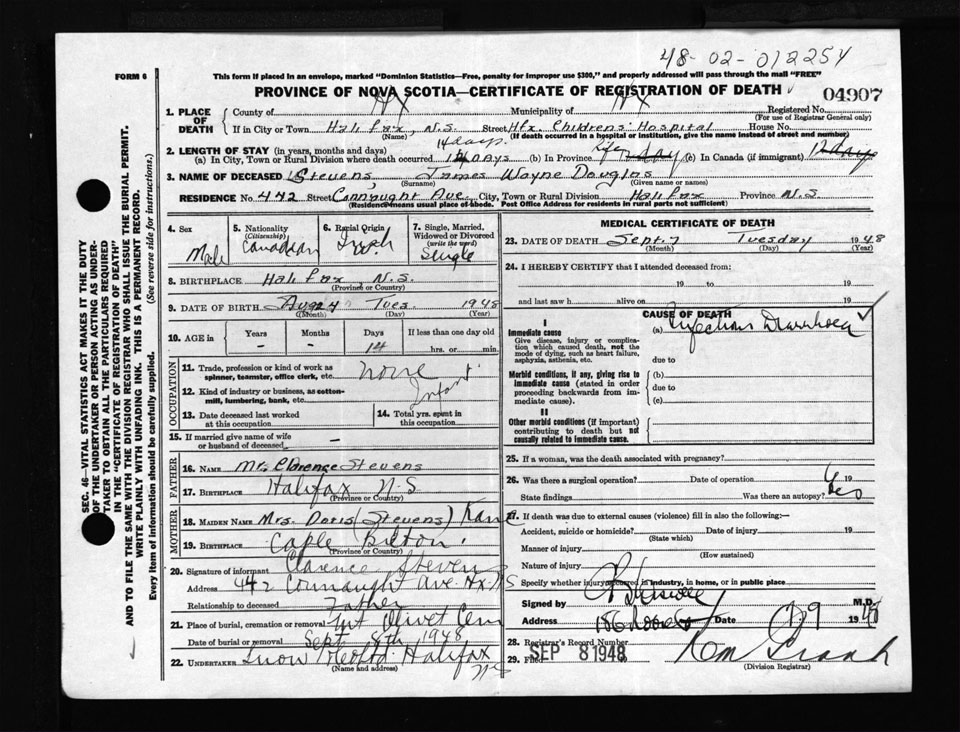 48-02-012254
FORM 6
This form if placed in an envelope, marked "Dominion Statistics—Free, penalty for improper use $300," and properly addressed will pass through the mail "FREE"
PROVINCE OF NOVA SCOTIA—CERTIFICATE OF REGISTRATION OF DEATH
04907
1. PLACE OF DEATH
County of HX Municipality of HX Registered No.
(For use of Registrar General only)
If in City or Town Halifax, N.S. Street Hfx. Childrens' Hospital House No.
(Name) (If death occurred in a hospital or institution, give the name instead of street and number)
2. LENGTH OF STAY (in years, months and days)
14 days
(a) In City, Town or Rural Division where death occurred 14 days (b) In Province Life day (c) In Canada (if immigrant) 12 days
3. NAME OF DECEASED Stevens, James Wayne Douglas
(Surname) (Given name or names)
RESIDENCE No. 442 Street Connaught Ave. City, Town or Rural Division Halifax Province N.S
(Residence means usual place of abode. Post Office Address for residents in rural parts not sufficient)
4. Sex
Male
5. Nationality
(Citizenship)
Canadian
6. Racial Origin
Irish
7. Single, Married, Widowed or Divorced
(write the word)
Single
8. BIRTHPLACE Halifax N.S.
(Province or Country)
9. DATE OF BIRTH Aug 24 Tues 1948
(Month) (Day) (Year)
10. AGE in
Years Months Days If less than one day old
- - 14 hrs. or min.
OCCUPATION
11. Trade, profession or kind of work as spinner, teamster, office clerk, etc. none
12. Kind of industry or business, as cotton-mill, lumbering, bank, etc. Infant
13. Date deceased last worked at this occupation
14. Total yrs. spent in this occupation
15. If married give name of wife or husband of deceased -
FATHER
16. NAME Mr. Clarence Stevens
17. BIRTHPLACE Halifax N.S
(Province or Country)
MOTHER
18. MAIDEN NAME Mrs. Doris (Stevens) Kane
19. BIRTHPLACE Caple Briton.
(Province or Country)
20. Signature of informant Clarence Stevens
Address 442 Connaught Ave. Hx. NS
Relationship to deceased Father
21. Place of burial, cremation or removal Mt Olivet Cem
Date of burial or removal Sept 8th 1948
22. UNDERTAKER Snow Halifax
(Name and address) NS
MEDICAL CERTIFICATE OF DEATH
23. DATE OF DEATH Sept. 7 Tuesday 1948
(Month) (Day) (Year)
24. I HEREBY CERTIFY that I attended deceased from:
19 to 19
and last saw h alive on 19
CAUSE OF DEATH
I
Immediate cause
Give disease, injury or complication which caused death, not the mode of dying, such as heart failure, asphyxia, asthenia, etc.
(a) Infectious Diarrhoea
due to
Morbid conditions, if any, giving rise to immediate cause (stated in order proceeding backwards from immediate cause).
(b)
due to
(c)
II
Other morbid conditions (if important) contributing to death but not causally related to immediate cause.
25. If a woman, was the death associated with pregnancy?
26. Was there a surgical operation? Date of operation 19
State findings Was there an autopsy? Yes
27. If death was due to external causes (violence) fill in also the following:-
Accident, suicide or homicide? Date of injury 19
(State which)
Manner of injury
(How sustained)
Nature of injury
Specify whether injury occurred in industry, in home, or in public place
Signed by M.D.
Address Date 7/9 1948
28. Registrar's Record Number
29. Filed SEP 8 1948
(Division Registrar)
SEC. 46—VITAL STATISTICS ACT MAKES IT THE DUTY OF THE UNDERTAKER OR PERSON ACTING AS UNDERTAKER TO OBTAIN ALL THE PARTICULARS REQUIRED IN THE "CERTIFICATE OF REGISTRATION OF DEATH" AND TO FILE THE SAME WITH THE DIVISION REGISTRAR WHO SHALL ISSUE THE BURIAL PERMIT.
WRITE PLAINLY WITH UNFADING INK. THIS IS A PERMANENT RECORD.
Every item of information should be carefully supplied. (See reverse side for instructions.)